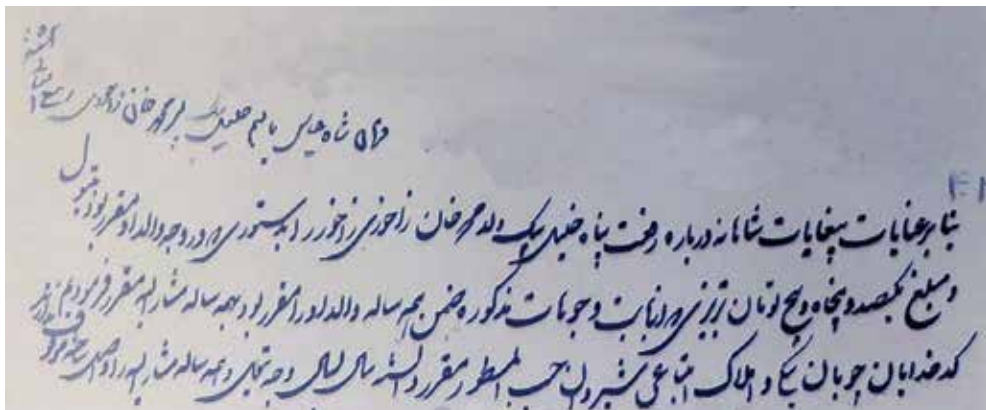 فرمان شاه عباس بنام خلیل بیک پسر محمد خان زاخوری
بنا بر عنایات بیغایات شاهانه درباره رفعت پناه خلیل بیک ولد محمد خان زاخوری زاخور را بدستوری که در وجه والد او مقرر بود بتیول
و مبلغ یکصد و پنجاه و پنج تومان تبریزی که از بابت وجوهات مذکوره ضمن همه ساله والد او مقرر بود بهمه ساله مشارالیه مقرر فرمودیم
کدخدایان چوپان بیکی و املاک ابتیاعی شیروان حسب المسطور مقرر دانسته سال بسال وجه تیول و همه ساله مشارالیه را واصل